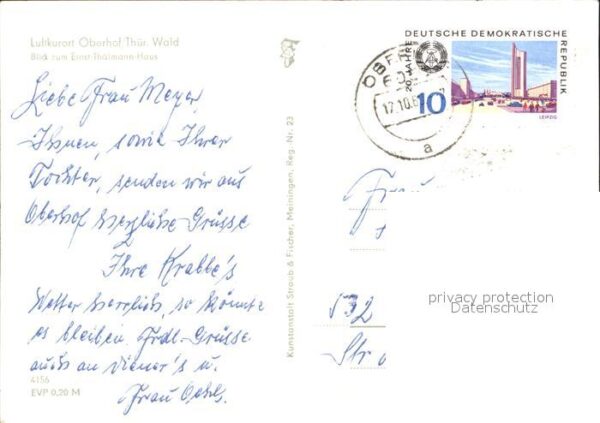 Luftkurort Oberhof Thür. Wald
Blick zum Ernst-Thälmann-Haus
Liebe Frau Meyer,
Ihnen, sowie Ihrer
Tochter, senden wir aus
Oberhof herzliche Grüsse
Ihre Krabbe's
Wetter herrlich, so könnte
es bleiben. Frdl. Grüsse
auch an Diener's u.
Frau
4156
EVP 0,20 M
Kunstanstalt Straub & Fischer, Meiningen, Reg.-Nr. 23
DEUTSCHE DEMOKRATISCHE
REPUBLIK
20 JAHRE
DDR
10
LEIPZIG
17.10.6
a
Frau
532
Str
privacy protection
Datenschutz